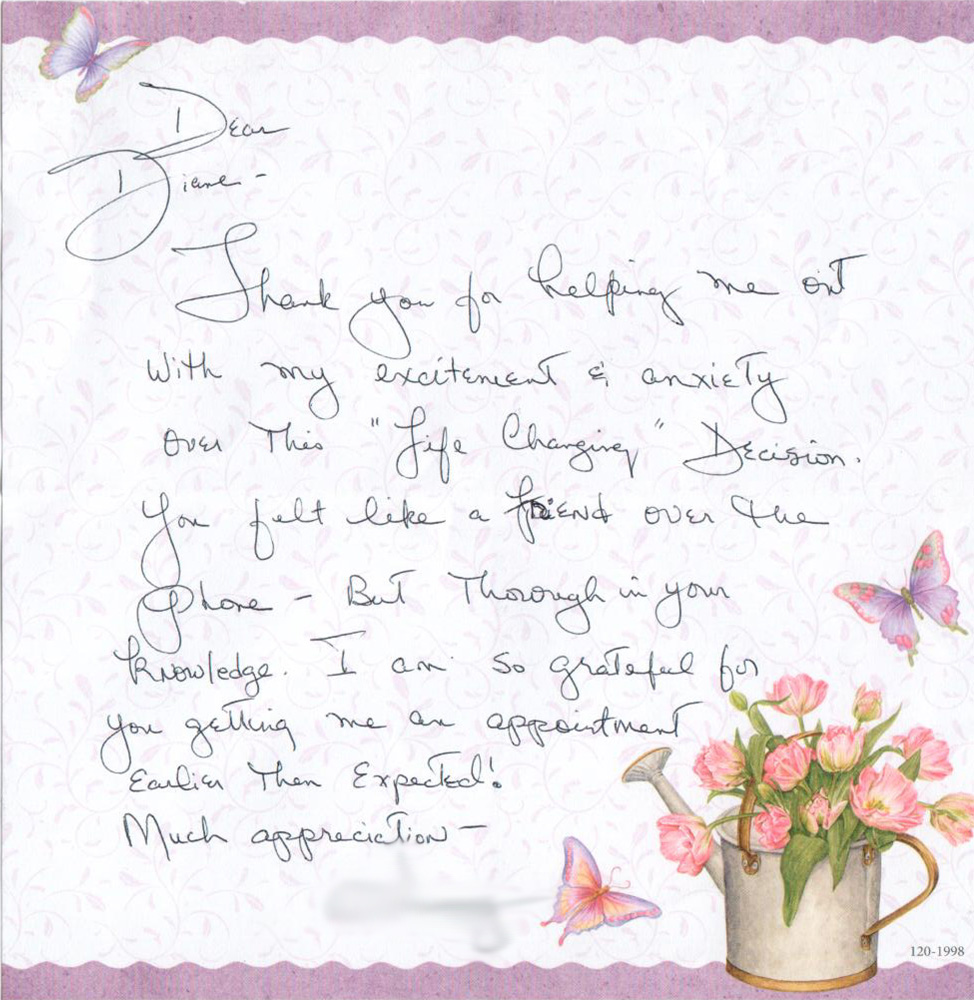 Dear
Diane -
Thank you for helping me out
With my excitement & anxiety
over This "Life Changing" Decision.
You felt like a friend over the
phone - But Thorough in your
knowledge. I am so grateful for
you getting me an appointment
Earlier Then Expected!
Much appreciation -
120-1998